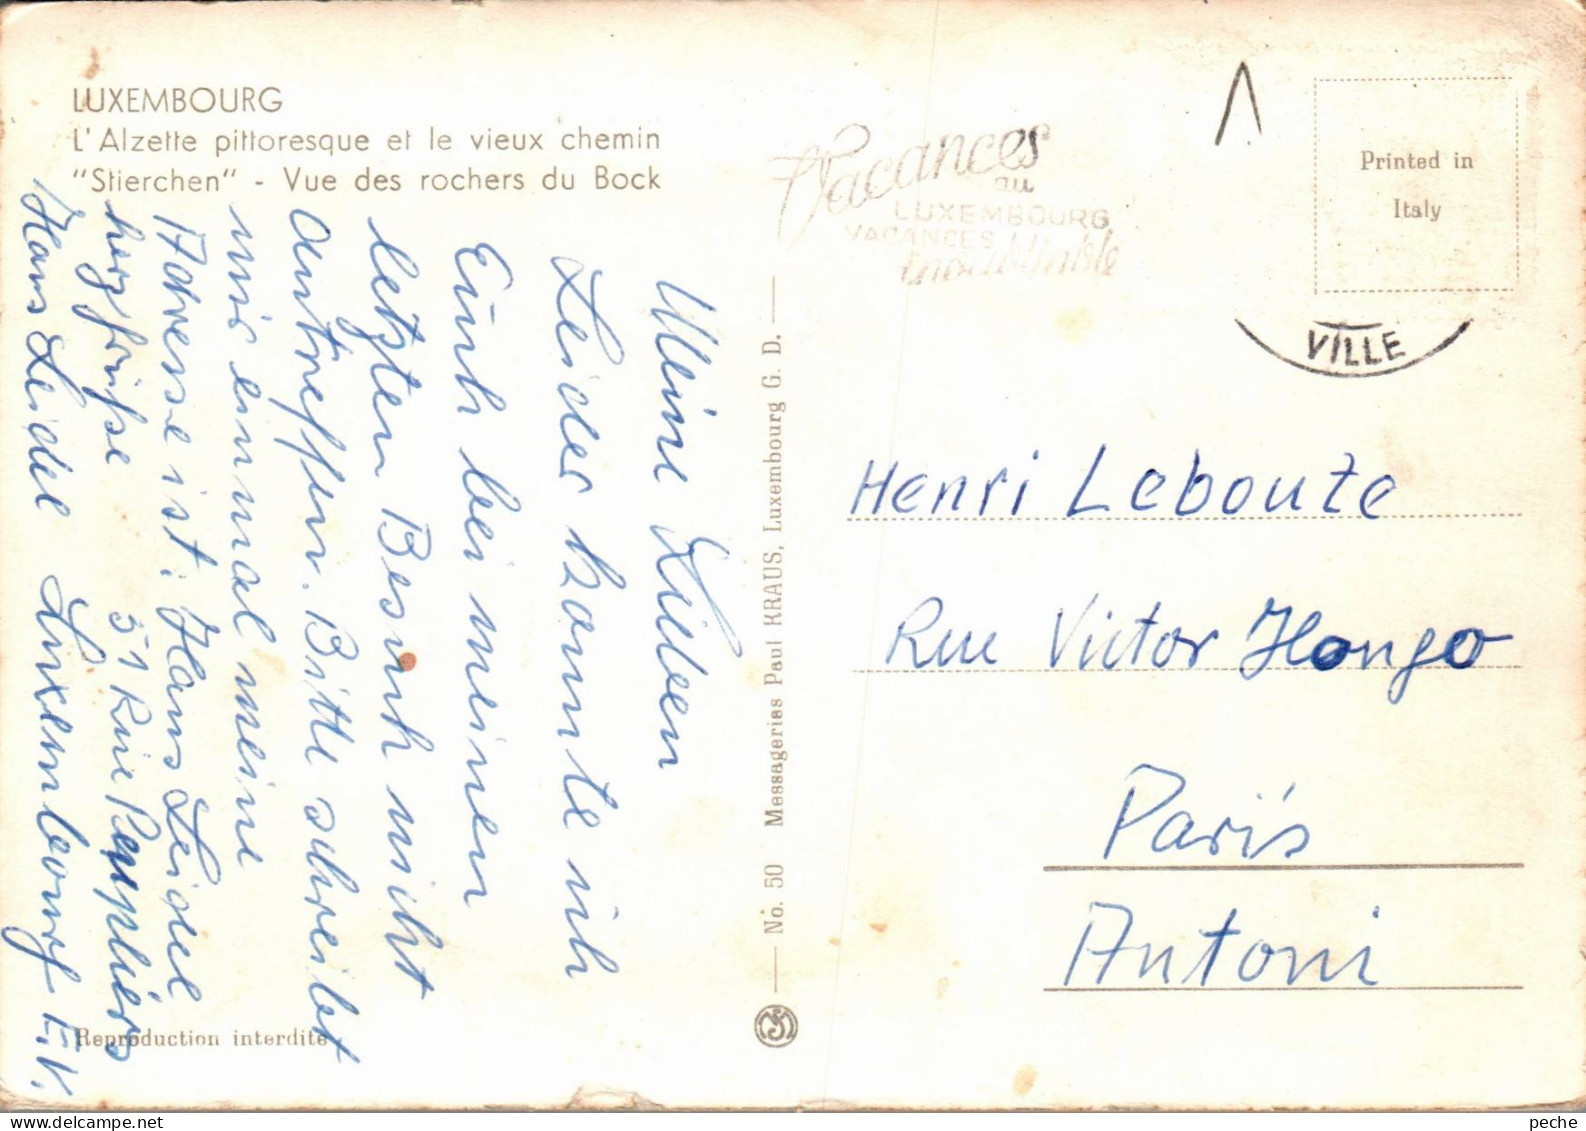 LUXEMBOURG
L'Alzette pittoresque et le vieux chemin
"Stierchen" - Vue des rochers du Bock
Meine Lieben
Leider konnte ich
Euch bei meinen
letzten Besuch nicht
antreffen. Bitte schreibt
mir einmal meine
Adresse ist: Hans Leidel
herz. Grüsse 51 Rue Peupliers
Hans Leidel Luxembourg
Reproduction interdite
No. 50 Messageries Paul KRAUS, Luxembourg G. D.
Vacances
au
LUXEMBOURG
VACANCES
inoubliable
Printed in
Italy
VILLE
Henri Leboute
Rue Victor Hougo
Paris
Antoni
peche